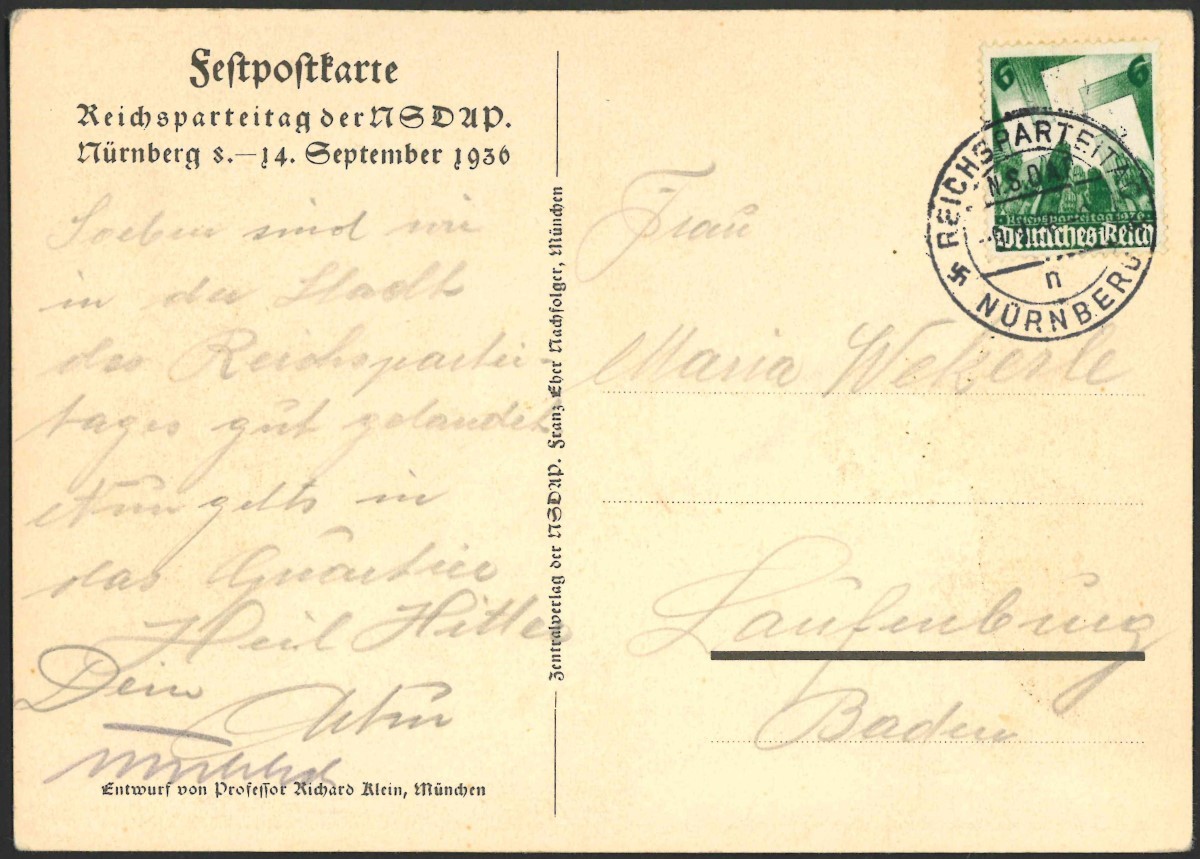 Festpostkarte
Reichsparteitag der NSDAP.
Nürnberg 8.–14. September 1936
Soeben sind wir
in der Stadt
des Reichspartei-
tages gut gelandet
Nun gehts in
das Quartier
Heil Hitler
Dein
Entwurf von Professor Richard Klein, München
Zentralverlag der NSDAP. Franz Eher Nachfolger, München
6 6
Reichsparteitag 1936
Deutsches Reich
REICHSPARTEITAG
N.S.D.A.P.
n
NÜRNBERG
Frau
Maria Wekerle
Laufenburg
Baden